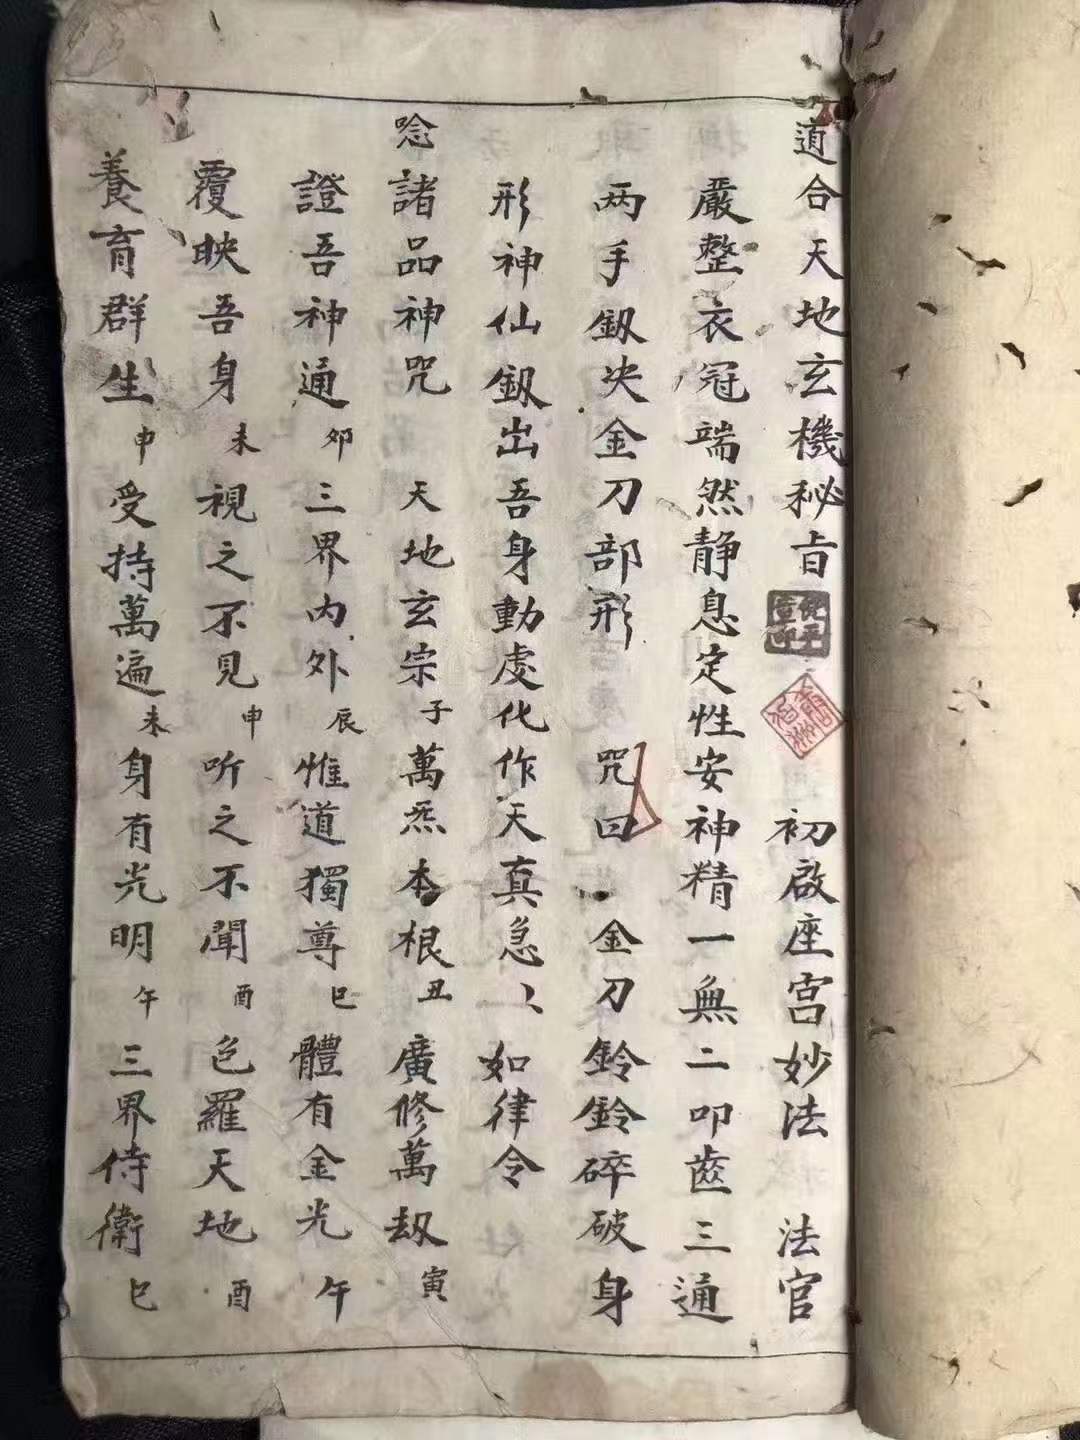 道合天地玄機秘旨 初啟座宮妙法 法官
嚴整衣冠端然静息定性安神精一無二叩齒三通
两手釼决金刀部形 咒曰 金刀鈴鈴碎破身
形神仙釼出吾身動處化作天真急、、如律令
唸諸品神咒 天地玄宗子萬炁本根丑廣修萬劫寅
證吾神通卯三界內外辰惟道獨尊巳體有金光午
覆映吾身未視之不見申听之不聞酉包羅天地酉
養育群生申受持萬遍未身有光明午三界侍衛巳